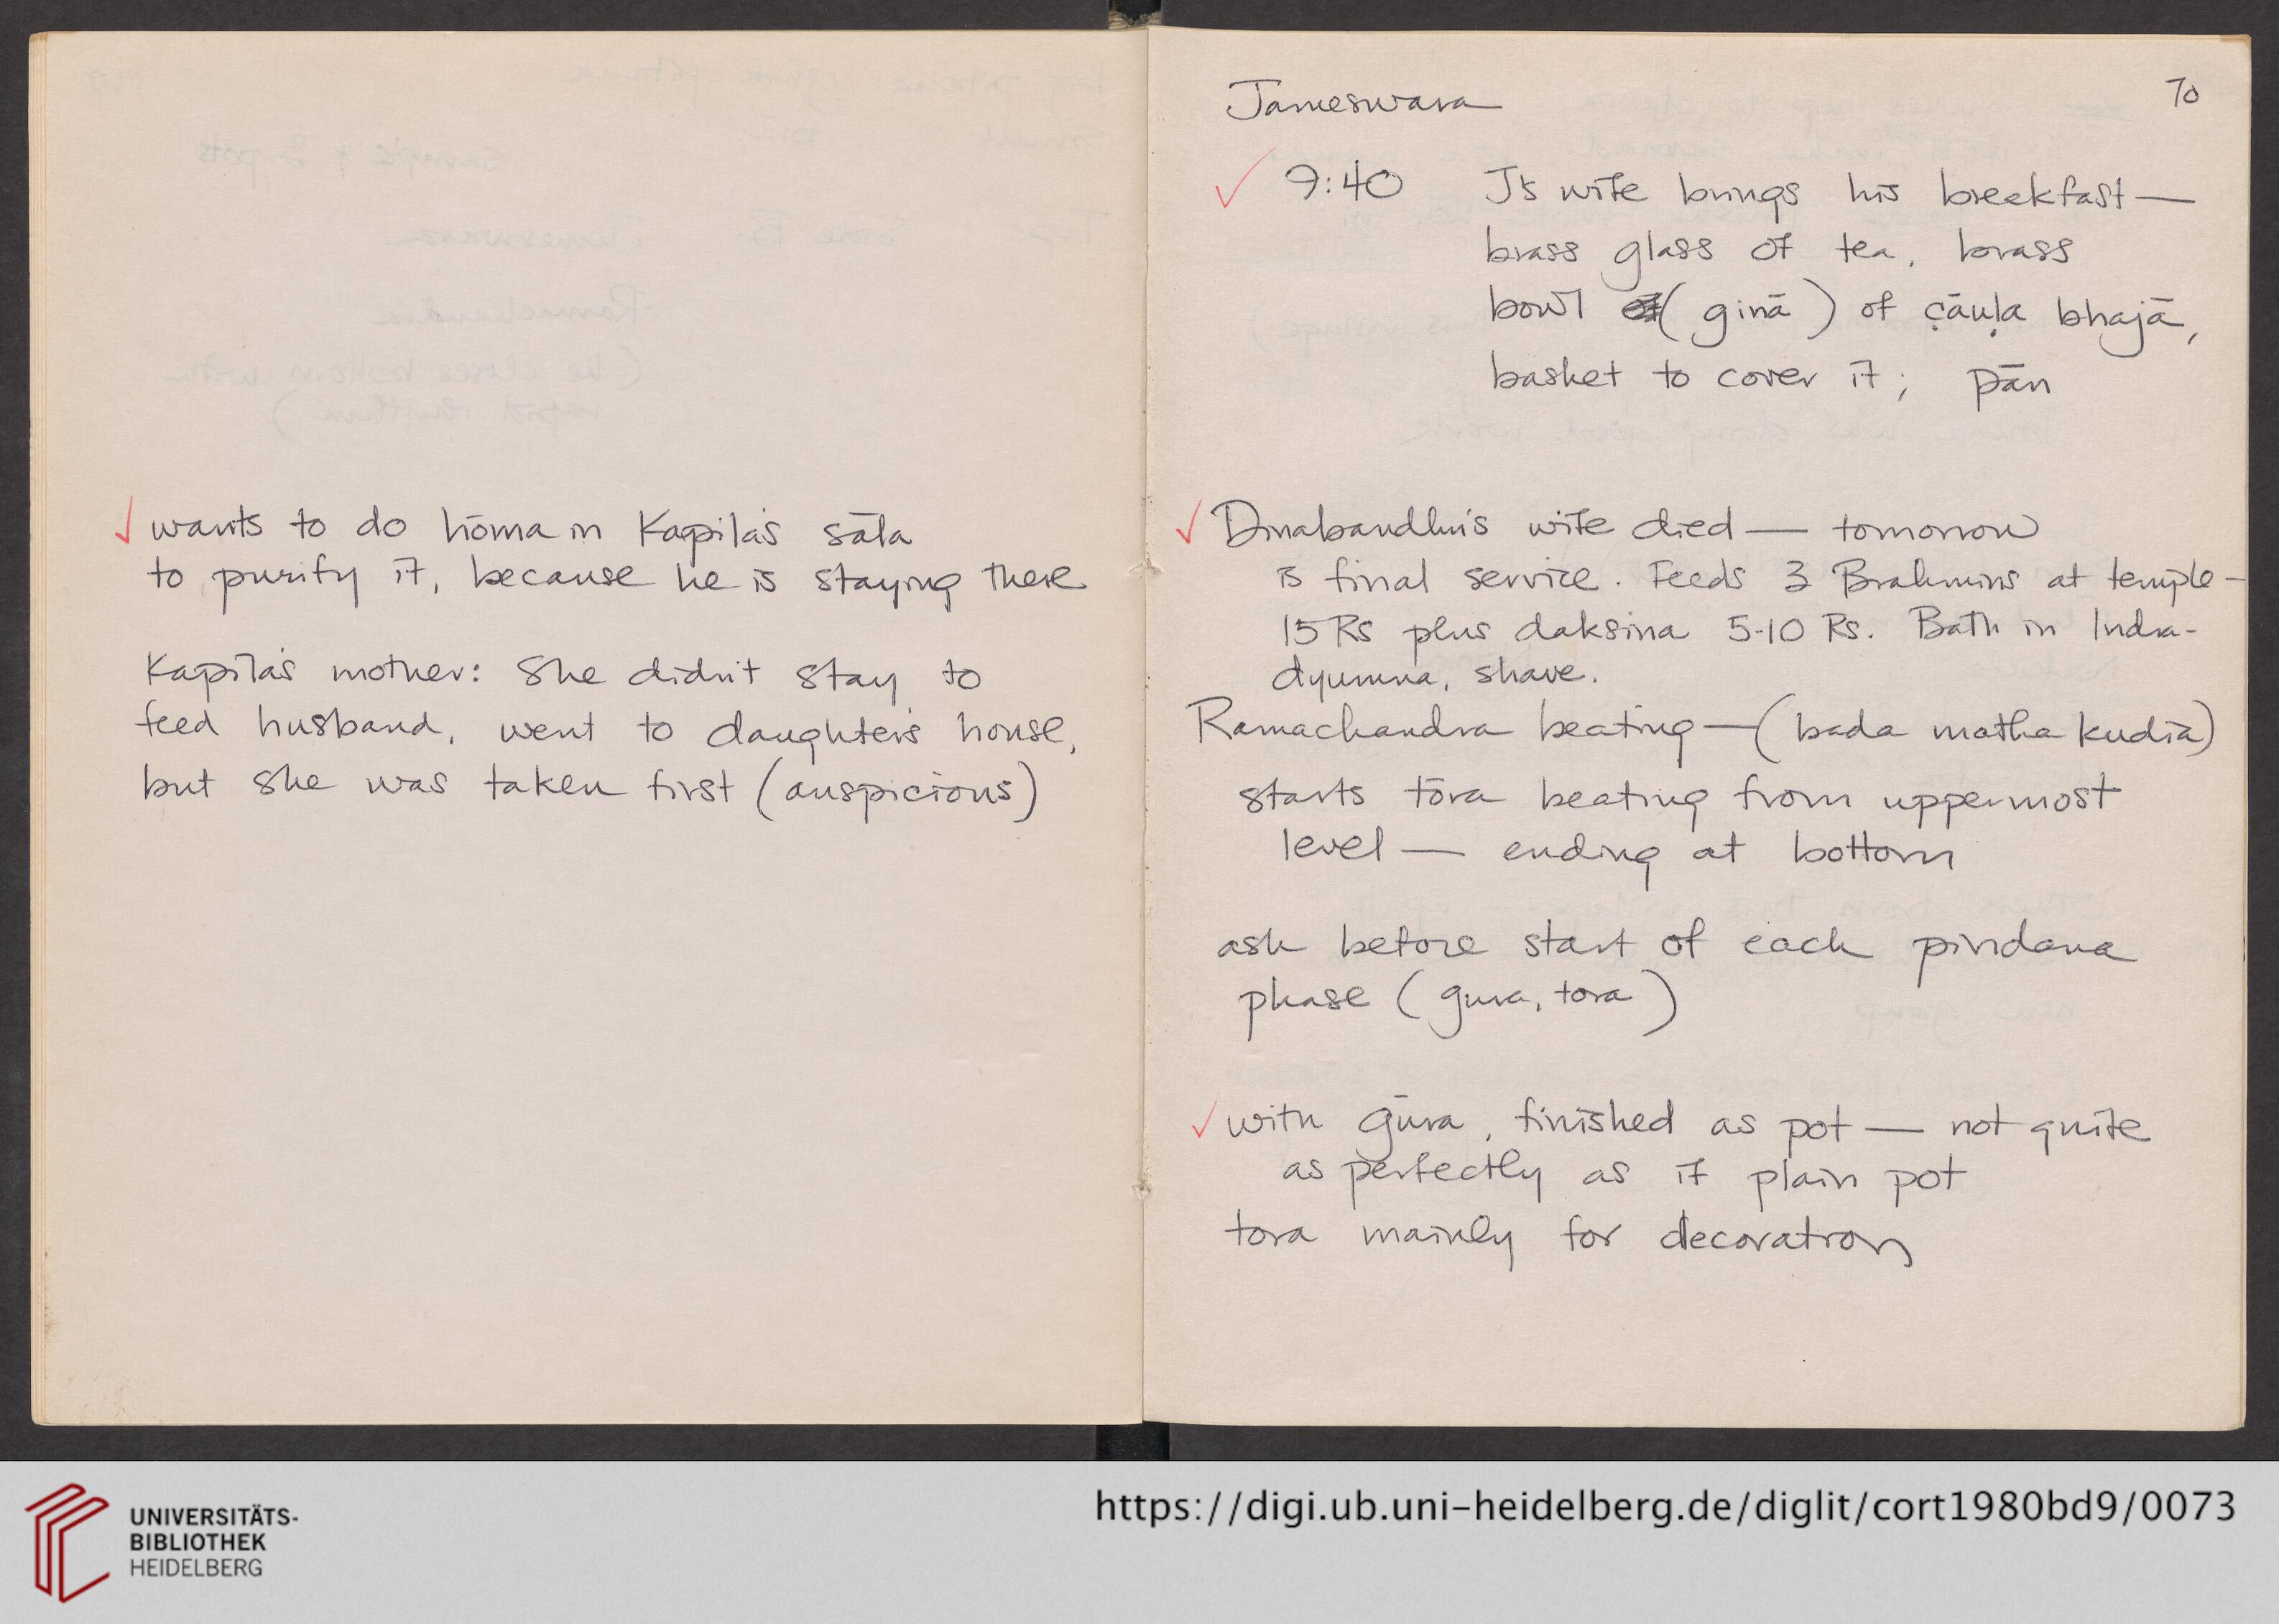 wants to do hōma in Kapila's sāla
to purify it, because he is staying there
Kapila's mother: She didn't stay to
feed husband, went to daughter's house,
but she was taken first (auspicious)
Jameswara
70
9:40 J's wife brings his breakfast —
brass glass of tea, brass
bowl (ginā) of c̣āuḷa bhajā,
basket to cover it; pān
Dinabandhu's wife died — tomorrow
is final service. Feeds 3 Brahmins at temple –
15 Rs plus daksina 5-10 Rs. Bath in Indra-
dyumna, shave.
Ramachandra beating — (bada matha kudia)
starts tōra beating from uppermost
level — ending at bottom
ask before start of each pindana
phase (gura, tora)
with gūra, finished as pot — not quite
as perfectly as if plain pot
tora mainly for decoration
UNIVERSITÄTS-
BIBLIOTHEK
HEIDELBERG
https://digi.ub.uni-heidelberg.de/diglit/cort1980bd9/0073